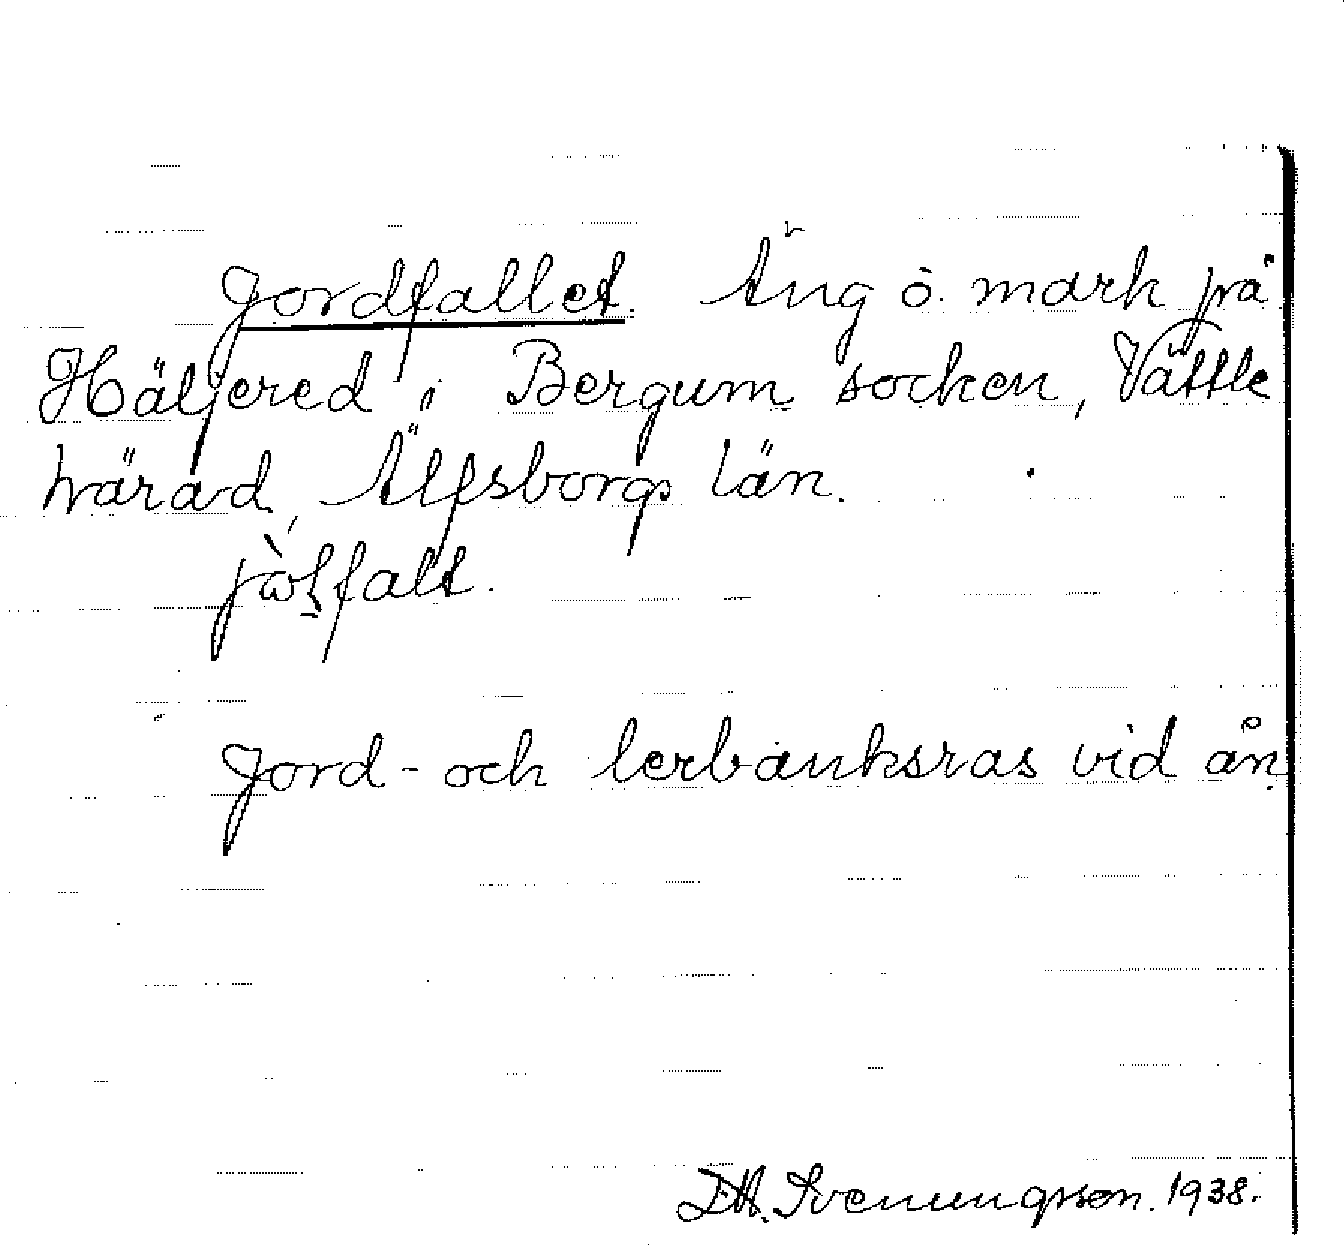 Jordfallet. Äng o. mark på
Häljered i Bergum socken, Vättle
härad, Älfsborgs län.
Jord- och lerbanksras vid ån.
Svenungsson. 1938.